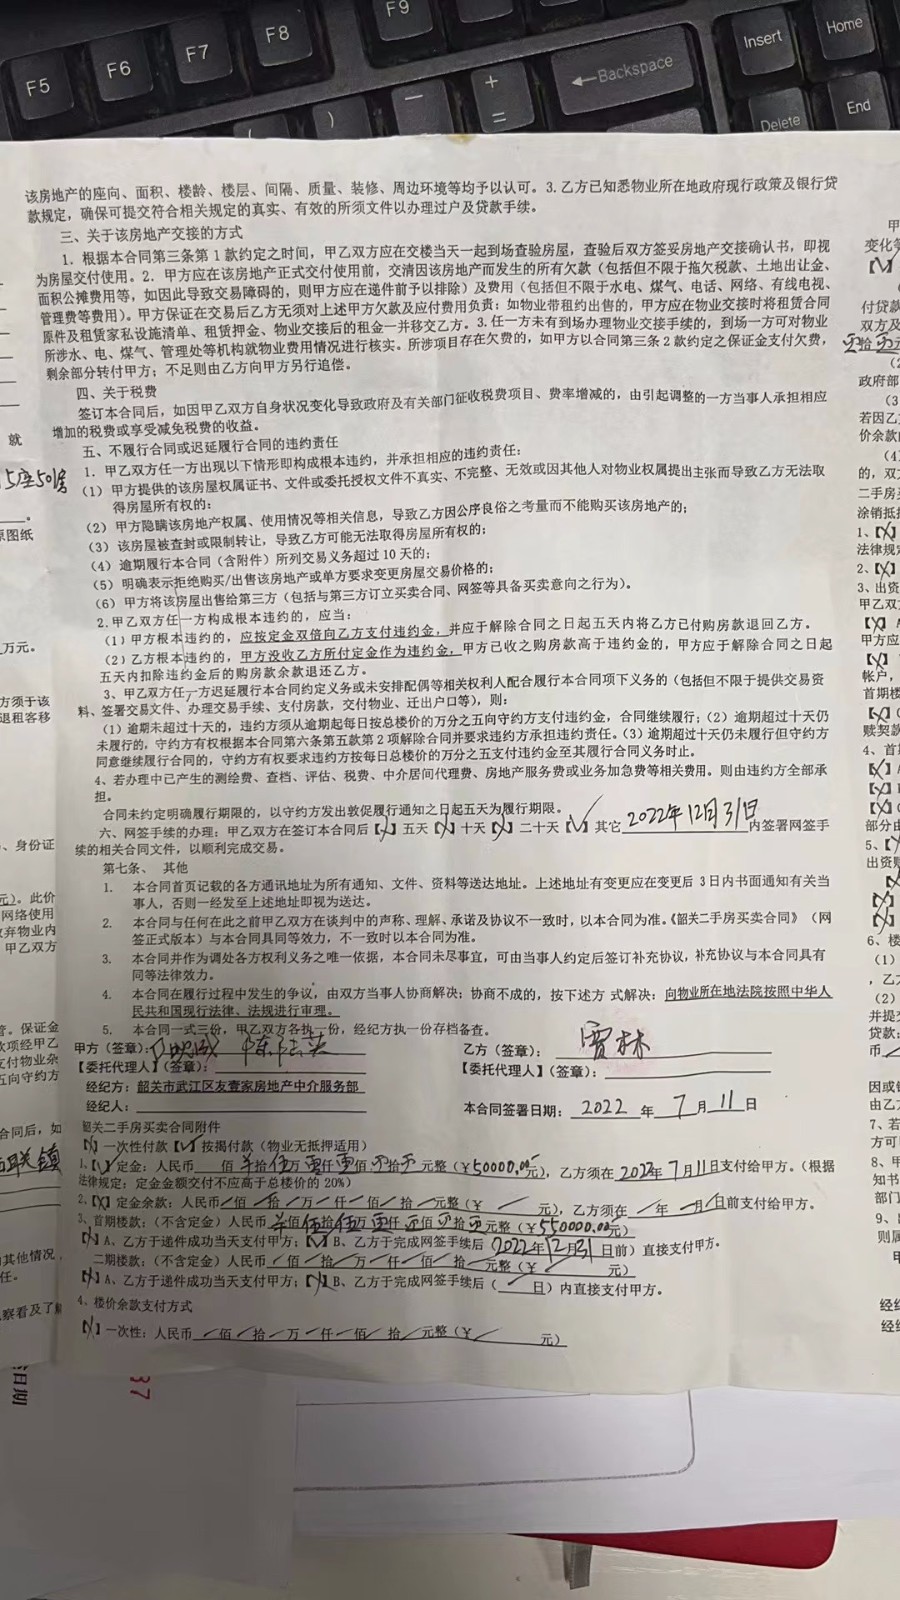 F5
F6
F7
F8
F9
+
=
←Backspace
Insert
Home
Delete
End
该房地产的座向、面积、楼龄、楼层、间隔、质量、装修、周边环境等均予以认可。3.乙方已知悉物业所在地政府现行政策及银行贷
款规定，确保可提交符合相关规定的真实、有效的所须文件以办理过户及贷款手续。
三、关于该房地产交接的方式
1. 根据本合同第三条第1款约定之时间，甲乙双方应在交楼当天一起到场查验房屋，查验后双方签妥房地产交接确认书，即视
为房屋交付使用。2. 甲方应在该房地产正式交付使用前，交清因该房地产而发生的所有欠款（包括但不限于拖欠税款、土地出让金、
面积公摊费用等，如因此导致交易障碍的，则甲方应在递件前予以排除）及费用（包括但不限于水电、煤气、电话、网络、有线电视、
管理费等费用）。甲方保证在交易后乙方无须对上述甲方欠款及应付费用负责；如物业带租约出售的，甲方应在物业交接时将租赁合同
原件及租赁家私设施清单、租赁押金、物业交接后的租金一并移交乙方。3.任一方未有到场办理物业交接手续的，到场一方可对物业
所涉水、电、煤气、管理处等机构就物业费用情况进行核实。所涉项目存在欠费的，如甲方以合同第三条2款约定之保证金支付欠费，
剩余部分转付甲方；不足则由乙方向甲方另行追偿。
四、关于税费
签订本合同后，如因甲乙双方自身状况变化导致政府及有关部门征收税费项目、费率增减的，由引起调整的一方当事人承担相应
增加的税费或享受减免税费的收益。
五、不履行合同或迟延履行合同的违约责任
1. 甲乙双方任一方出现以下情形即构成根本违约，并承担相应的违约责任：
（1）甲方提供的该房屋权属证书、文件或委托授权文件不真实、不完整、无效或因其他人对物业权属提出主张而导致乙方无法取
得房屋所有权的；
（2）甲方隐瞒该房地产权属、使用情况等相关信息，导致乙方因公序良俗之考量而不能购买该房地产的；
（3）该房屋被查封或限制转让，导致乙方可能无法取得房屋所有权的；
（4）逾期履行本合同（含附件）所列交易义务超过10天的；
（5）明确表示拒绝购买/出售该房地产或单方要求变更房屋交易价格的；
（6）甲方将该房屋出售给第三方（包括与第三方订立买卖合同、网签等具备买卖意向之行为）。
2.甲乙双方任一方构成根本违约的，应当：
（1）甲方根本违约的，应按定金双倍向乙方支付违约金，并应于解除合同之日起五天内将乙方已付购房款退回乙方。
（2）乙方根本违约的，甲方没收乙方所付定金作为违约金，甲方已收之购房款高于违约金的，甲方应于解除合同之日起
五天内扣除违约金后的购房款余款退还乙方。
3、甲乙双方任一方迟延履行本合同约定义务或未安排配偶等相关权利人配合履行本合同项下义务的（包括但不限于提供交易资
料、签署交易文件、办理交易手续、支付房款，交付物业、迁出户口等），则：
（1）逾期未超过十天的，违约方须从逾期起每日按总楼价的万分之五向守约方支付违约金，合同继续履行；（2）逾期超过十天仍
未履行的，守约方有权根据本合同第六条第五款第2项解除合同并要求违约方承担违约责任。（3）逾期超过十天仍未履行但守约方
同意继续履行合同的，守约方有权要求违约方按每日总楼价的万分之五支付违约金至其履行合同义务时止。
4、若办理中已产生的测绘费、查档、评估、税费、中介居间代理费、房地产服务费或业务加急费等相关费用。则由违约方全部承
担。
合同未约定明确履行期限的，以守约方发出敦促履行通知之日起五天为履行期限。
六、网签手续的办理：甲乙双方在签订本合同后【╳】五天【╳】十天【╳】二十天【√】其它 2022年12月31日内签署网签手
续的相关合同文件，以顺利完成交易。
第七条、 其他
1. 本合同首页记载的各方通讯地址为所有通知、文件、资料等送达地址。上述地址有变更应在变更后3日内书面通知有关当
事人，否则一经发至上述地址即视为送达。
2. 本合同与任何在此之前甲乙双方在谈判中的声称、理解、承诺及协议不一致时，以本合同为准。《韶关二手房买卖合同》（网
签正式版本）与本合同具同等效力，不一致时以本合同为准。
3. 本合同并作为调处各方权利义务之唯一依据，本合同未尽事宜，可由当事人约定后签订补充协议，补充协议与本合同具有
同等法律效力。
4. 本合同在履行过程中发生的争议，由双方当事人协商解决；协商不成的，按下述方 式解决：向物业所在地法院按照中华人
民共和国现行法律、法规进行审理。
5. 本合同一式三份，甲乙双方各执一份，经纪方执一份存档备查。
甲方（签章）：
乙方（签章）： 贾林
【委托代理人】（签章）：
【委托代理人】（签章）：
经纪方：韶关市武江区友壹家房地产中介服务部
经纪人：
本合同签署日期：2022 年 7 月 11 日
韶关二手房买卖合同附件
【╳】一次性付款【√】按揭付款（物业无抵押适用）
1.【√】定金：人民币 佰 羊拾伍万零仟零佰零拾零元整（￥50000.00元），乙方须在2022年7月11日支付给甲方。（根据
法律规定：定金金额交付不应高于总楼价的20%）
2.【╳】定金余款：人民币／佰／拾／万／仟／佰／拾／元整（￥／元），乙方须在／年／月／日前支付给甲方。
3、首期楼款：（不含定金）人民币羊佰伍拾伍万零仟零佰零拾零元整（￥550000.00元）
【╳】A、乙方于递件成功当天支付甲方；【√】B、乙方于完成网签手续后（2022年12月31日前）直接支付甲方。
二期楼款：（不含定金）人民币／佰／拾／万／仟／佰／拾／元整（￥／元）
【╳】A、乙方于递件成功当天支付甲方；【╳】B、乙方于完成网签手续后（／日）内直接支付甲方。
4、楼价余款支付方式
【╳】一次性：人民币／佰／拾／万／仟／佰／拾／元整（￥／元）
就
5座501房
原图纸
万元。
方须于该
退租客移
、身份证
元）。此价
网络使用
放弃物业内
甲乙双方
管。保证金
款项经甲乙
支付物业杂
五向守约方
合同后，如
其他情况
任。
察看及了解
日期
37
变化等
付贷款
双方及
政府部
若因乙
价余款
的，双
二手房买
涂销抵押
法律规定
3、出资
甲乙双方
甲方应
帐户，
首期楼
赎契款
4、首期
部分由
出资赎
6、楼
（1）
，乙方
（2）
并提交
贷款：
币
因或银
由乙方
7、若
方可
8、甲
知书
部门
9、出
则属
经纪
经纪